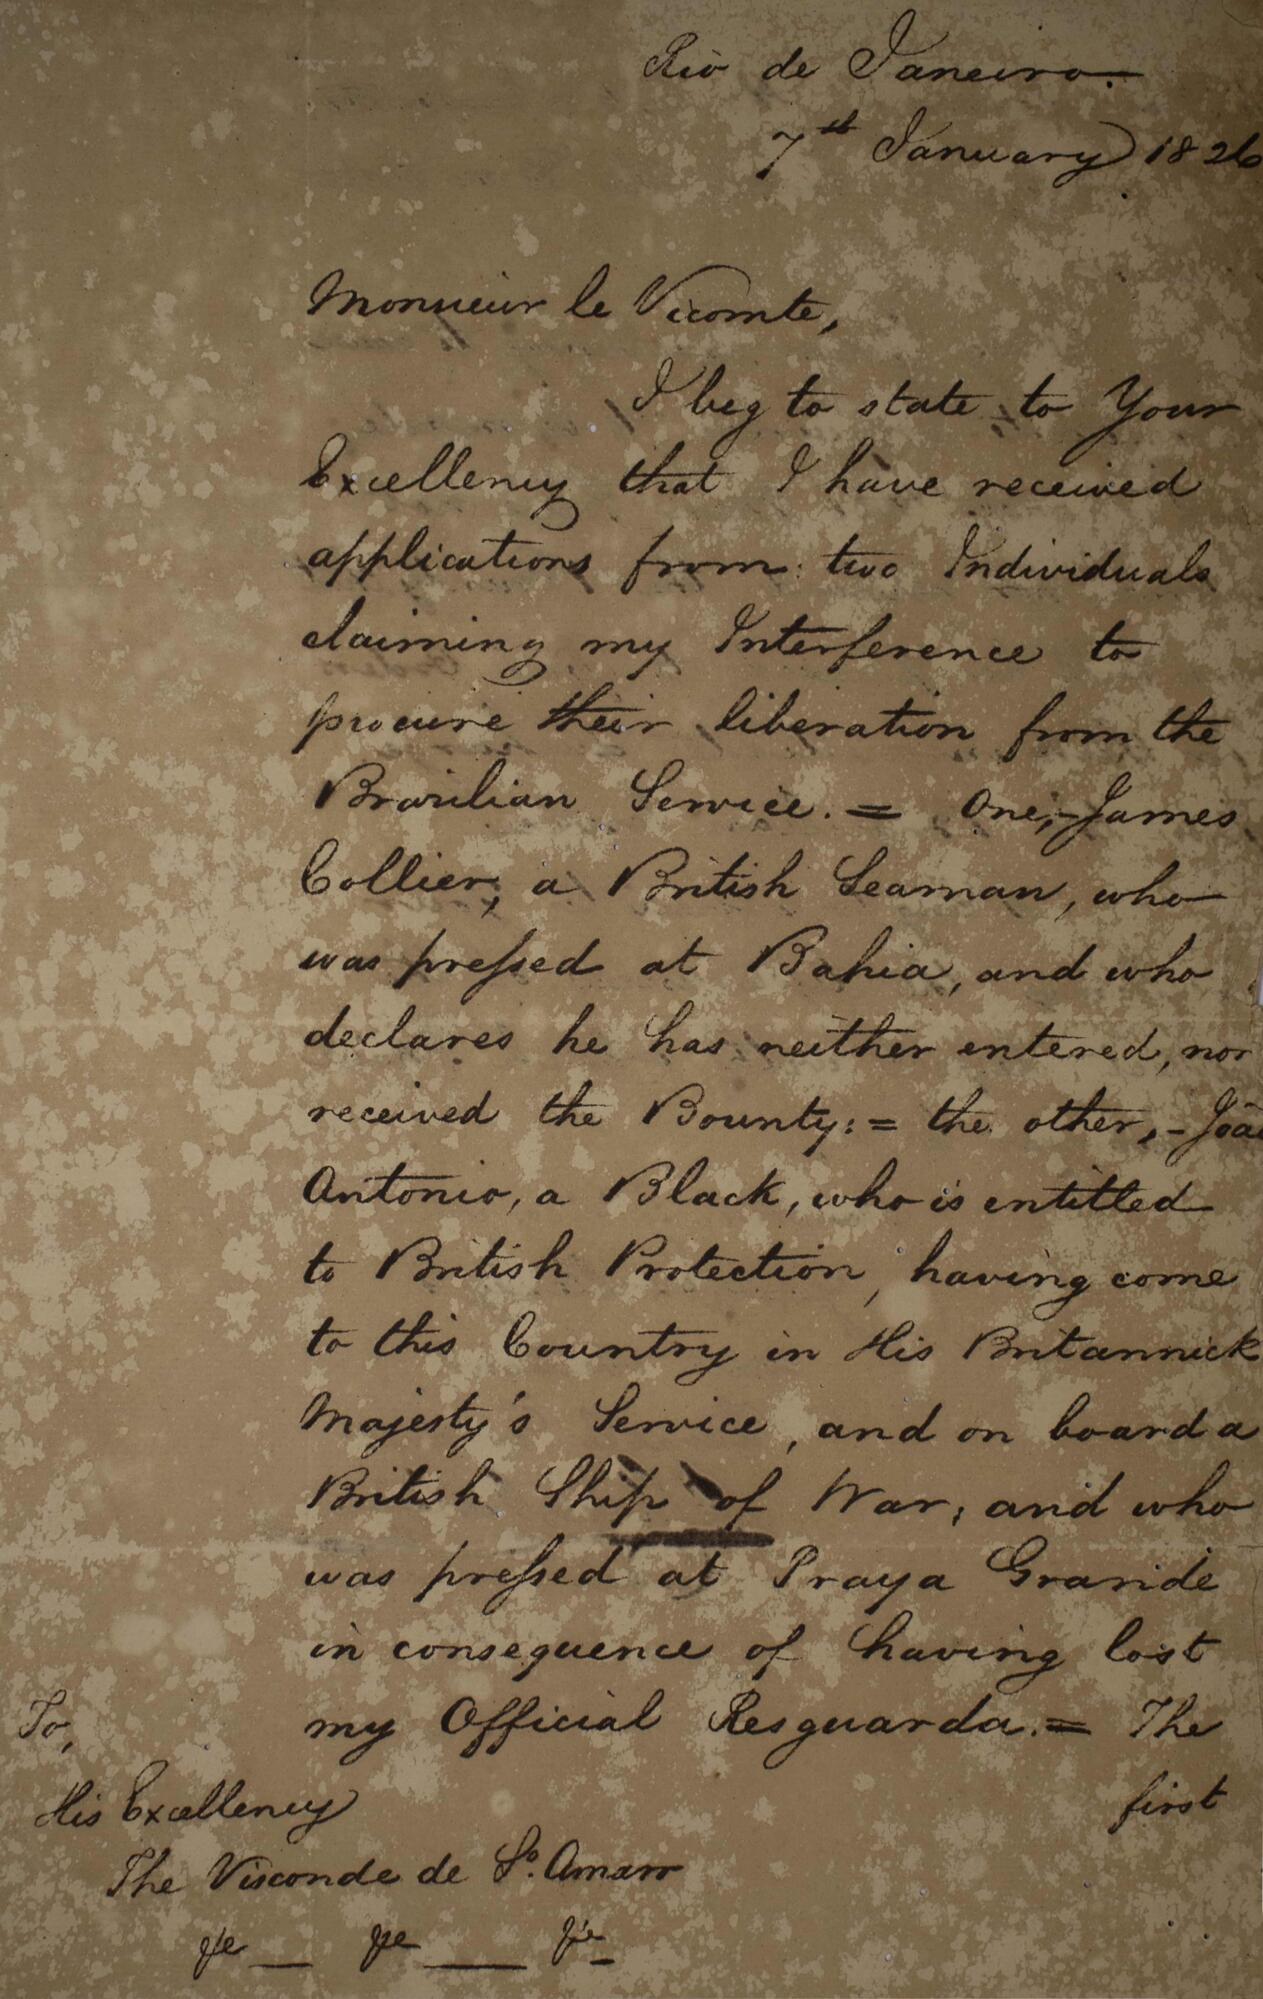 Rio de Janeiro.
7th January 1826
Monsieur le Vicomte,
I beg to state to Your
Excellency that I have received
applications from two Individuals
claiming my Interference to
procure their liberation from the
Brazilian Service. = One, - James
Collier, a British Seaman, who
was pressed at Bahia, and who
declares he has neither entered, nor
received the Bounty: = the other, - João
Antonio, a Black, who is entitled
to British Protection, having come
to this Country in His Britannick
Majesty's Service, and on board a
British Ship of War; and who
was pressed at Praya Grande
in consequence of having lost
my Official Resguarda. = The
first
To,
His Excellency
The Visconde de Sto. Amaro
&c &c &c